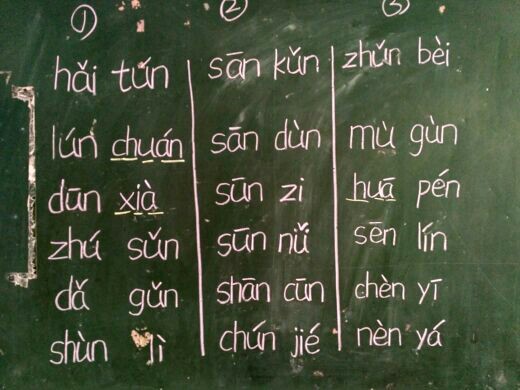 ① ② ③
hǎi tún sān kǔn zhǔn bèi
lún chuán sān dùn mù gùn
dūn xià sūn zi huā pén
zhú sǔn sūn nǚ sēn lín
dǎ gǔn shān cūn chèn yī
shùn lì chún jié nèn yá